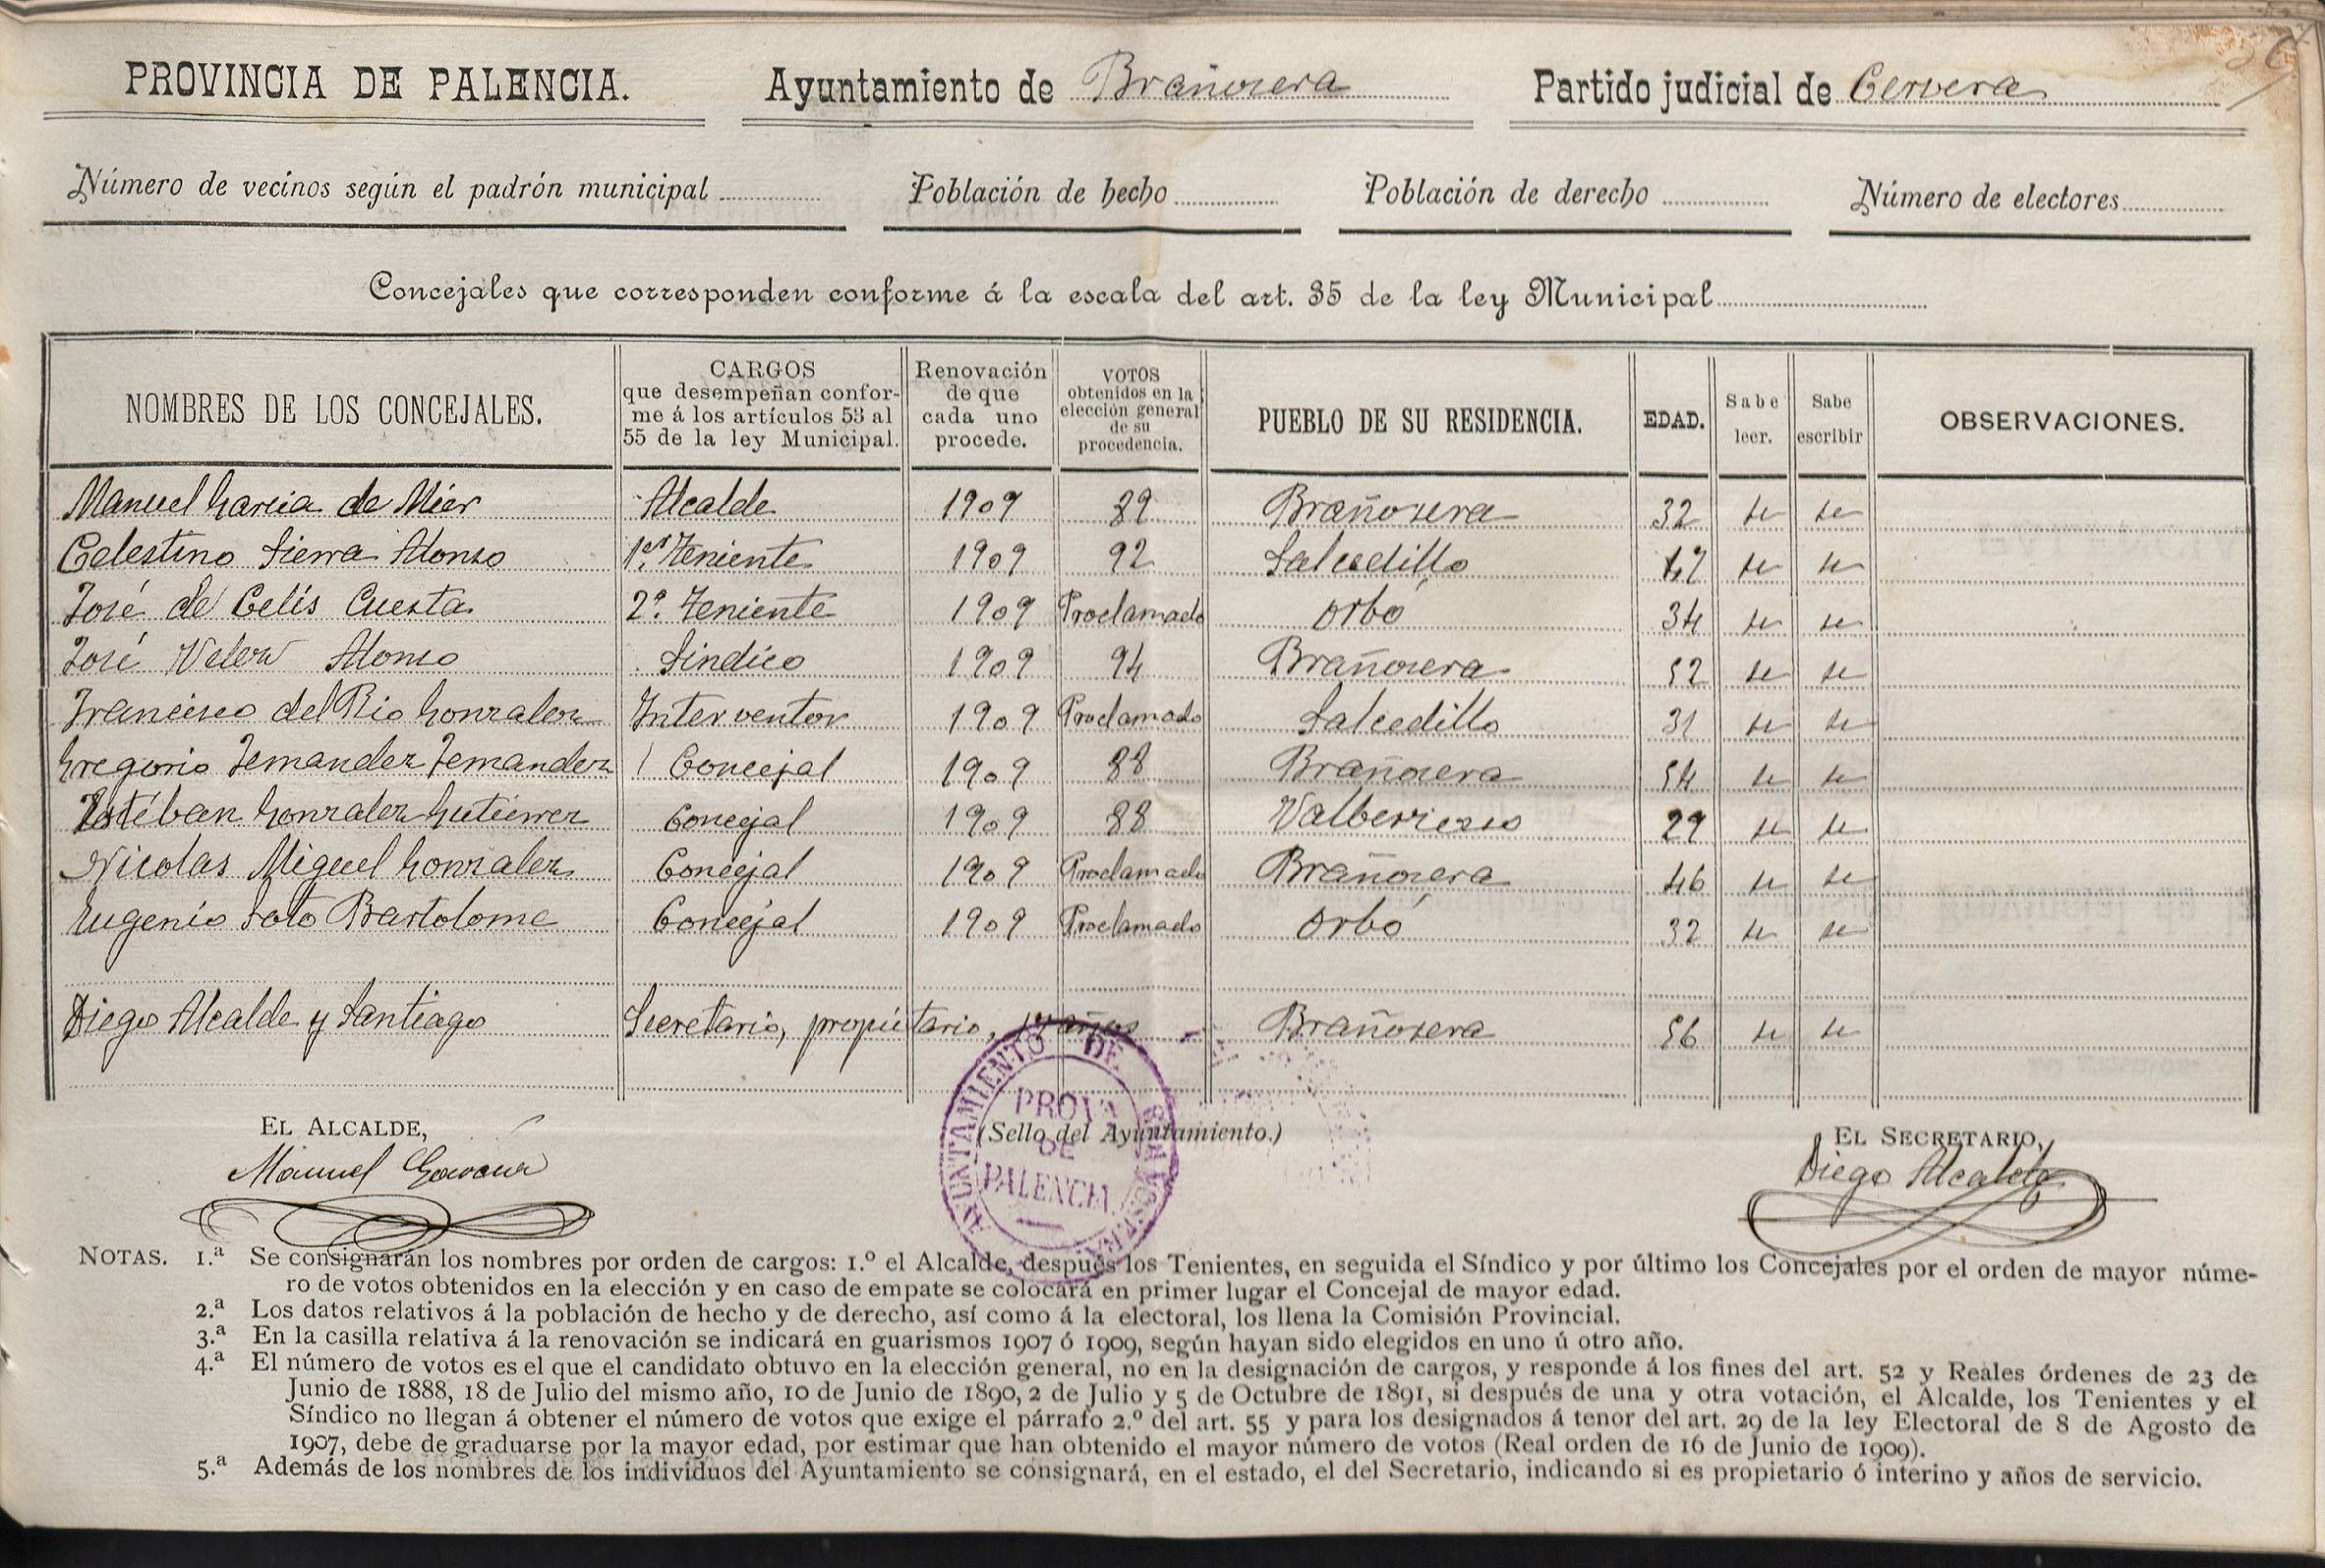 PROVINCIA DE PALENCIA. Ayuntamiento de Brañosera Partido judicial de Cervera
Número de vecinos según el padrón municipal Población de hecho Población de derecho Número de electores
Concejales que corresponden conforme á la escala del art. 35 de la ley Municipal
NOMBRES DE LOS CONCEJALES. CARGOS que desempeñan conforme á los artículos 53 al 55 de la ley Municipal. Renovación de que cada uno procede. VOTOS obtenidos en la elección general de su procedencia. PUEBLO DE SU RESIDENCIA. EDAD. Sabe leer. Sabe escribir OBSERVACIONES.
Manuel Garcia de Mier Alcalde 1909 89 Brañosera 32 si si
Celestino Sierra Alonso 1er Teniente 1909 92 Salcedillo 47 si si
José de Celis Cuesta 2º Teniente 1909 Proclamado Orbó 34 si si
José Alonso Sindico 1909 94 Brañosera 52 si si
Francisco del Rio Gonzalez Interventor 1909 Proclamado Salcedillo 31 si si
Gregorio Fernandez Fernandez Concejal 1909 88 Brañosera 54 si si
Estéban Gonzalez Gutierrez Concejal 1909 88 Valberzoso 29 si si
Nicolas Miguel Gonzalez Concejal 1909 Proclamado Brañosera 46 si si
Eugenio Soto Bartolome Concejal 1909 Proclamado Orbó 32 si si
Diego Alcalde y Santiago Secretario, propietario, años Brañosera 56 si si
EL ALCALDE, (Sello del Ayuntamiento.) EL SECRETARIO,
Manuel Garcia Diego Alcalde
AYUNTAMIENTO DE BRAÑOSERA
PROVA
DE
PALENCIA
NOTAS. 1.ª Se consignarán los nombres por orden de cargos: 1.º el Alcalde, después los Tenientes, en seguida el Síndico y por último los Concejales por el orden de mayor núme-
ro de votos obtenidos en la elección y en caso de empate se colocará en primer lugar el Concejal de mayor edad.
2.ª Los datos relativos á la población de hecho y de derecho, así como á la electoral, los llena la Comisión Provincial.
3.ª En la casilla relativa á la renovación se indicará en guarismos 1907 ó 1909, según hayan sido elegidos en uno ú otro año.
4.ª El número de votos es el que el candidato obtuvo en la elección general, no en la designación de cargos, y responde á los fines del art. 52 y Reales órdenes de 23 de
Junio de 1888, 18 de Julio del mismo año, 10 de Junio de 1890, 2 de Julio y 5 de Octubre de 1891, si después de una y otra votación, el Alcalde, los Tenientes y el
Síndico no llegan á obtener el número de votos que exige el párrafo 2.º del art. 55 y para los designados á tenor del art. 29 de la ley Electoral de 8 de Agosto de
1907, debe de graduarse por la mayor edad, por estimar que han obtenido el mayor número de votos (Real orden de 16 de Junio de 1909).
5.ª Además de los nombres de los individuos del Ayuntamiento se consignará, en el estado, el del Secretario, indicando si es propietario ó interino y años de servicio.